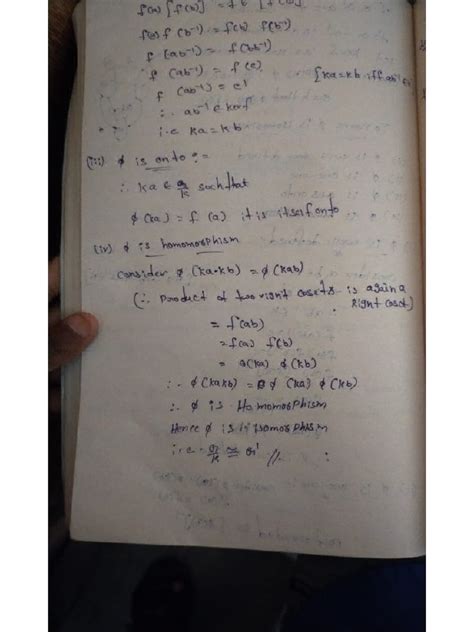 f(a) [f(b)]⁻¹ = f(b) [f(b)]⁻¹
f(a) f(b⁻¹) = f(b) f(b⁻¹)
f (ab⁻¹) = f(bb⁻¹)
f (ab⁻¹) = f(e)
f (ab⁻¹) = e' [ka=kb iff ab⁻¹ ∈
∴ ab⁻¹ ∈ kerf
i.e ka = kb
(iii) ϕ is onto :=
∴ ka ∈ G/K such that
ϕ(ka) = f(a) it is itself onto
(iv) ϕ is homomorphism
consider ϕ(ka·kb) = ϕ(kab)
(∴ product of two right cosets is again a
Right coset]
= f(ab)
= f(a) f(b)
= ϕ(ka) ϕ(kb)
∴ ϕ(kakb) = ϕ(ka) ϕ(kb)
∴ ϕ is Homomorphism
Hence ϕ is isomorphism
i.e. G/K ≅ G' //